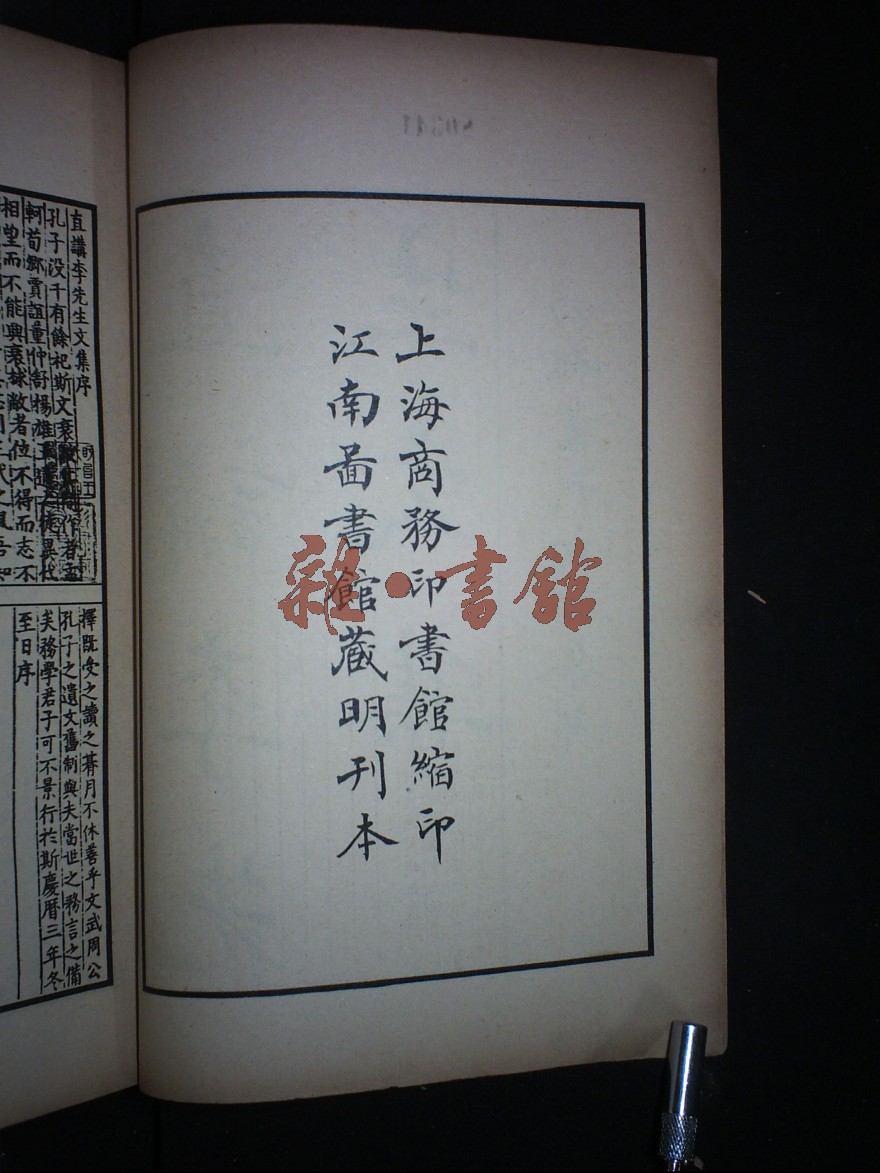 上海商務印書館縮印
江南啚書館蔵明刊本
雜·書館
直講李先生文集序
孔子没千有餘祀斯文衰
軻荀卿賈誼董仲舒揚雄
相望而不能興衰救敝者位不得而志不
擇既受之讀之朞月不休善乎文武周公
孔子之遺文舊制與夫當世之務言之備
矣務學君子可不景行於斯慶曆三年冬
至日序